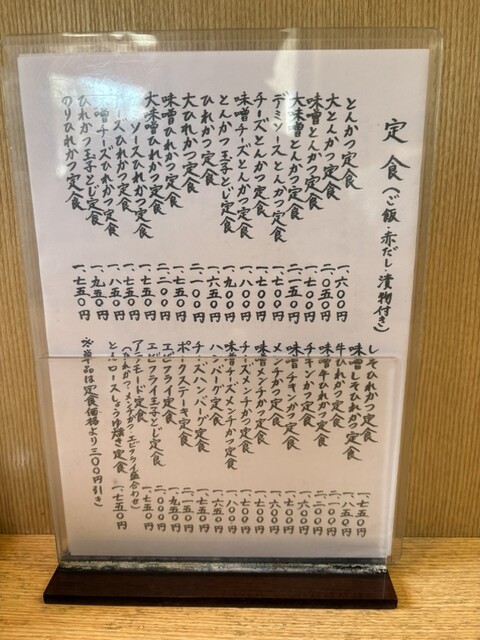 定食(ご飯・赤だし漬物付き)
とんかつ定食 一、六〇〇円
大とんかつ定食 二、〇五〇円
味噌とんかつ定食 一、七〇〇円
大味噌とんかつ定食 二、一五〇円
デミソースとんかつ定食 一、七〇〇円
チーズとんかつ定食 一、七〇〇円
味噌チーズとんかつ定食 一、八〇〇円
とんかつ玉子とじ定食 一、九〇〇円
ひれかつ定食 一、六五〇円
大ひれかつ定食 二、一〇〇円
味噌ひれかつ定食 一、七五〇円
大味噌ひれかつ定食 二、二〇〇円
ソースひれかつ定食 一、七五〇円
チーズひれかつ定食 一、七五〇円
味噌チーズひれかつ定食 一、八五〇円
ひれかつ玉子とじ定食 一、九五〇円
のりひれかつ定食 一、七五〇円
しそひれかつ定食 一、七五〇円
味噌しそひれかつ定食 一、八五〇円
牛ひれかつ定食 二、一〇〇円
味噌牛ひれかつ定食 二、二〇〇円
チキンかつ定食 一、六〇〇円
味噌チキンかつ定食 一、七〇〇円
メンチかつ定食 一、六〇〇円
味噌メンチかつ定食 一、七〇〇円
チーズメンチかつ定食 一、七〇〇円
味噌チーズメンチかつ定食 一、八〇〇円
ハンバーグ定食 一、六五〇円
チーズハンバーグ定食 一、七五〇円
ポークステーキ定食 二、一五〇円
エビフライ定食 一、九五〇円
エビフライ玉子とじ定食 二、〇〇〇円
アラモード定食 一、七五〇円
(ひれかつ・メンチかつ・エビフライ盛合わせ)
とんロースしょうゆ焼き定食 一、七五〇円
※単品は定食価格より三〇〇円引き)